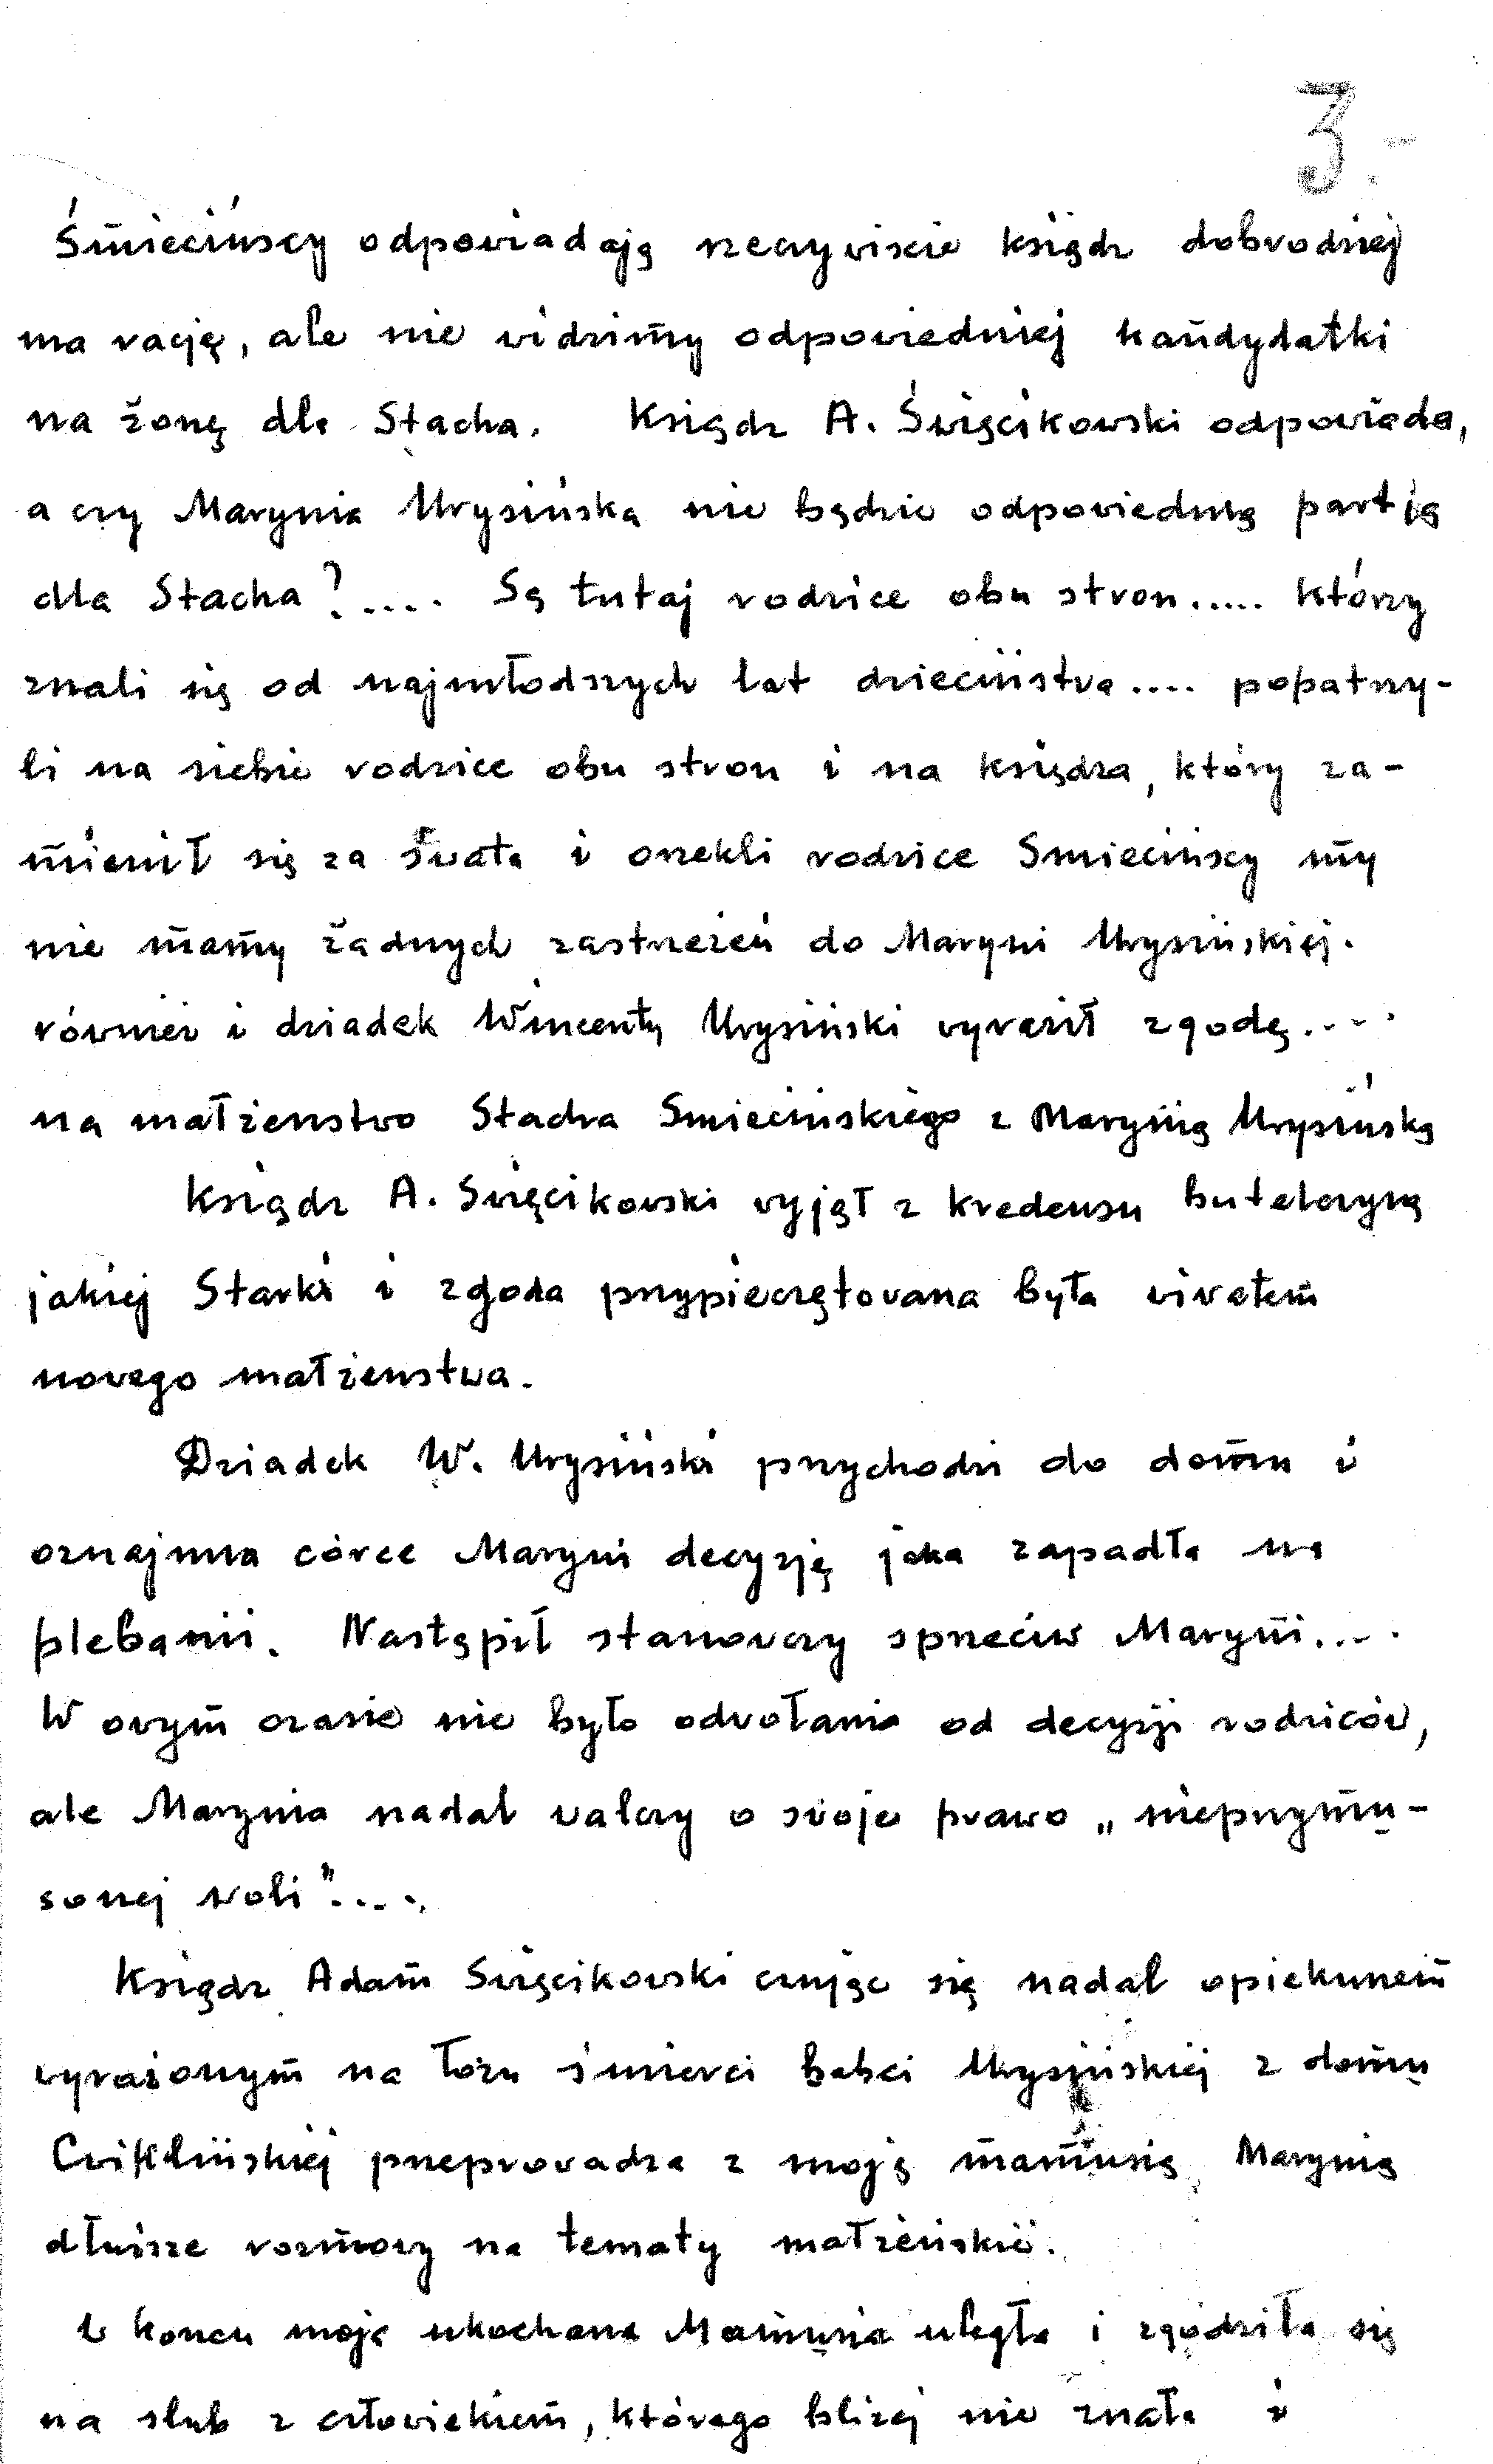 3.-
Śmiecińscy odpowiadają rzeczywiscie ksiądz dobrodziej
ma rację, ale nie widzimy odpowiedniej kandydatki
na żonę dla Stacha. Ksiądz A. Święcikowski odpowiada,
a czy Marynia Urysińska nie będzie odpowiednią partią
dla Stacha?.... Są tutaj rodzice obu stron..... którzy
znali się od najmłodszych lat dzieciństwa.... popatrzy-
li na siebie rodzice obu stron i na księdza, który za-
mienił się za swata i orzekli rodzice Smiecińscy my
nie mamy żadnych zastrzeżeń do Maryni Urysińskiej.
również i dziadek Wincenty Urysiński wyraził zgodę....
na małżenstwo Stacha Smiecińskiego z Marynią Urysińską
Ksiądz A. Swięcikowski wyjął z kredensu buteleczyną
jakiej Starki i zgoda przypieczętowana była wiwatem
nowego małżenstwa.
Dziadek W. Urysiński przychodzi do domu i
oznajmia córce Maryni decyzję jaka zapadła na
plebanii. Nastąpił stanowczy sprzeciw Maryni....
W owym czasie nie było odwołania od decyzji rodziców,
ale Marynia nadal walczy o swoje prawo „nieprzymu-
szonej woli"....
Ksiądz Adam Swięcikowski czując się nadal opiekunem
wyrażonym na łożu śmierci babci Urysińskiej z domu
Ćwiklińskiej przeprowadza z moją mamusią Marynią
dłuższe rozmowy na tematy małżeńskie.
W koncu moja ukochana Mamusia uległa i zgodziła się
na slub z człowiekiem, którego bliżej nie znała i